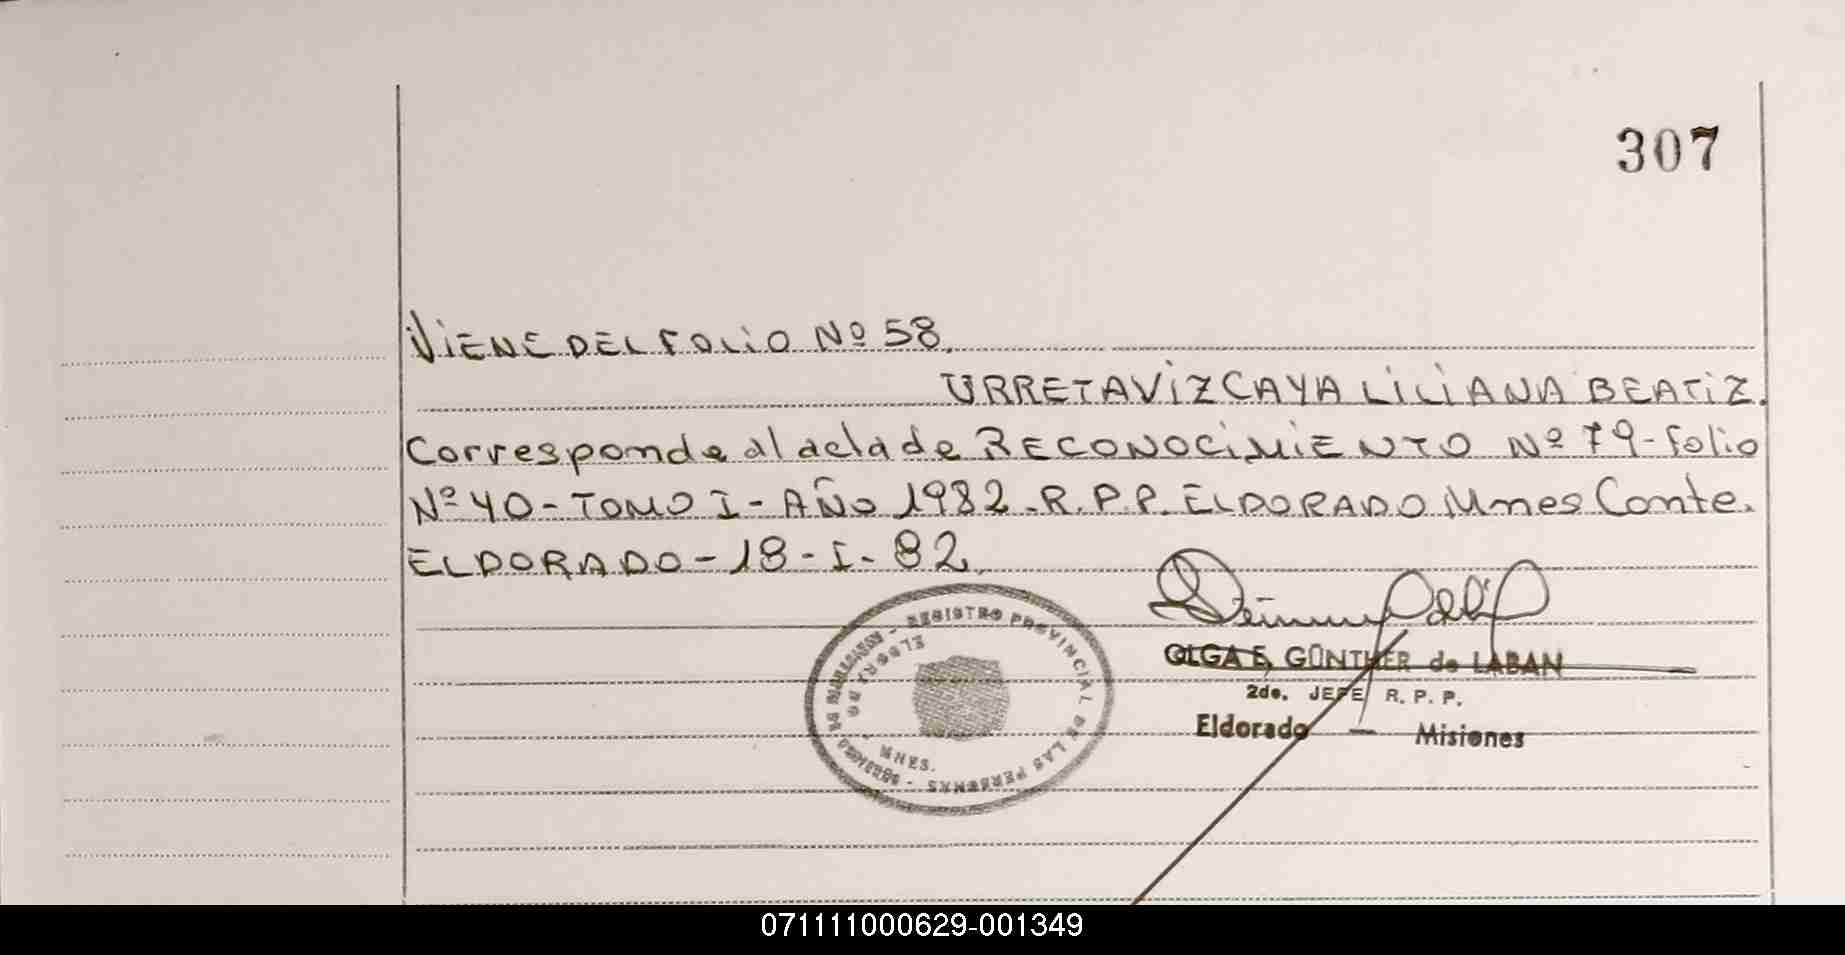 307
VIENE DEL FOLIO Nº 58.
URRETAVIZCAYA LILIANA BEATIZ.
Corresponde al acta de RECONOCIMIENTO Nº 79 - folio
Nº 40 - TOMO I - AÑO 1982 - R.P.P. ELDORADO Mnes Conte.
ELDORADO - 18 - I - 82.
REGISTRO PROVINCIAL DE LAS PERSONAS
MNES.
OLGA E. GÜNTHER de LABAN
2do. JEFE R. P. P.
Eldorado — Misiones
071111000629-001349